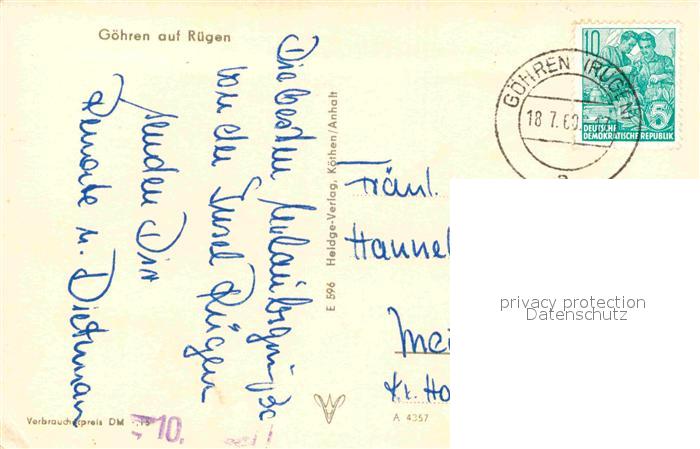 Göhren auf Rügen
Die besten Urlaubsgrüße
von der Insel Rügen
senden Dir
Renate u. Dietmar
E 596 Heldge-Verlag, Köthen/Anhalt
10
5
DEUTSCHE
DEMOKRATISCHE REPUBLIK
GÖHREN (RÜGEN)
18.7.60
a
Fräul.
Hannel
privacy protection
Datenschutz
Mei
Kr. Ho
Verbraucherpreis DM -.15
10.
A 4357